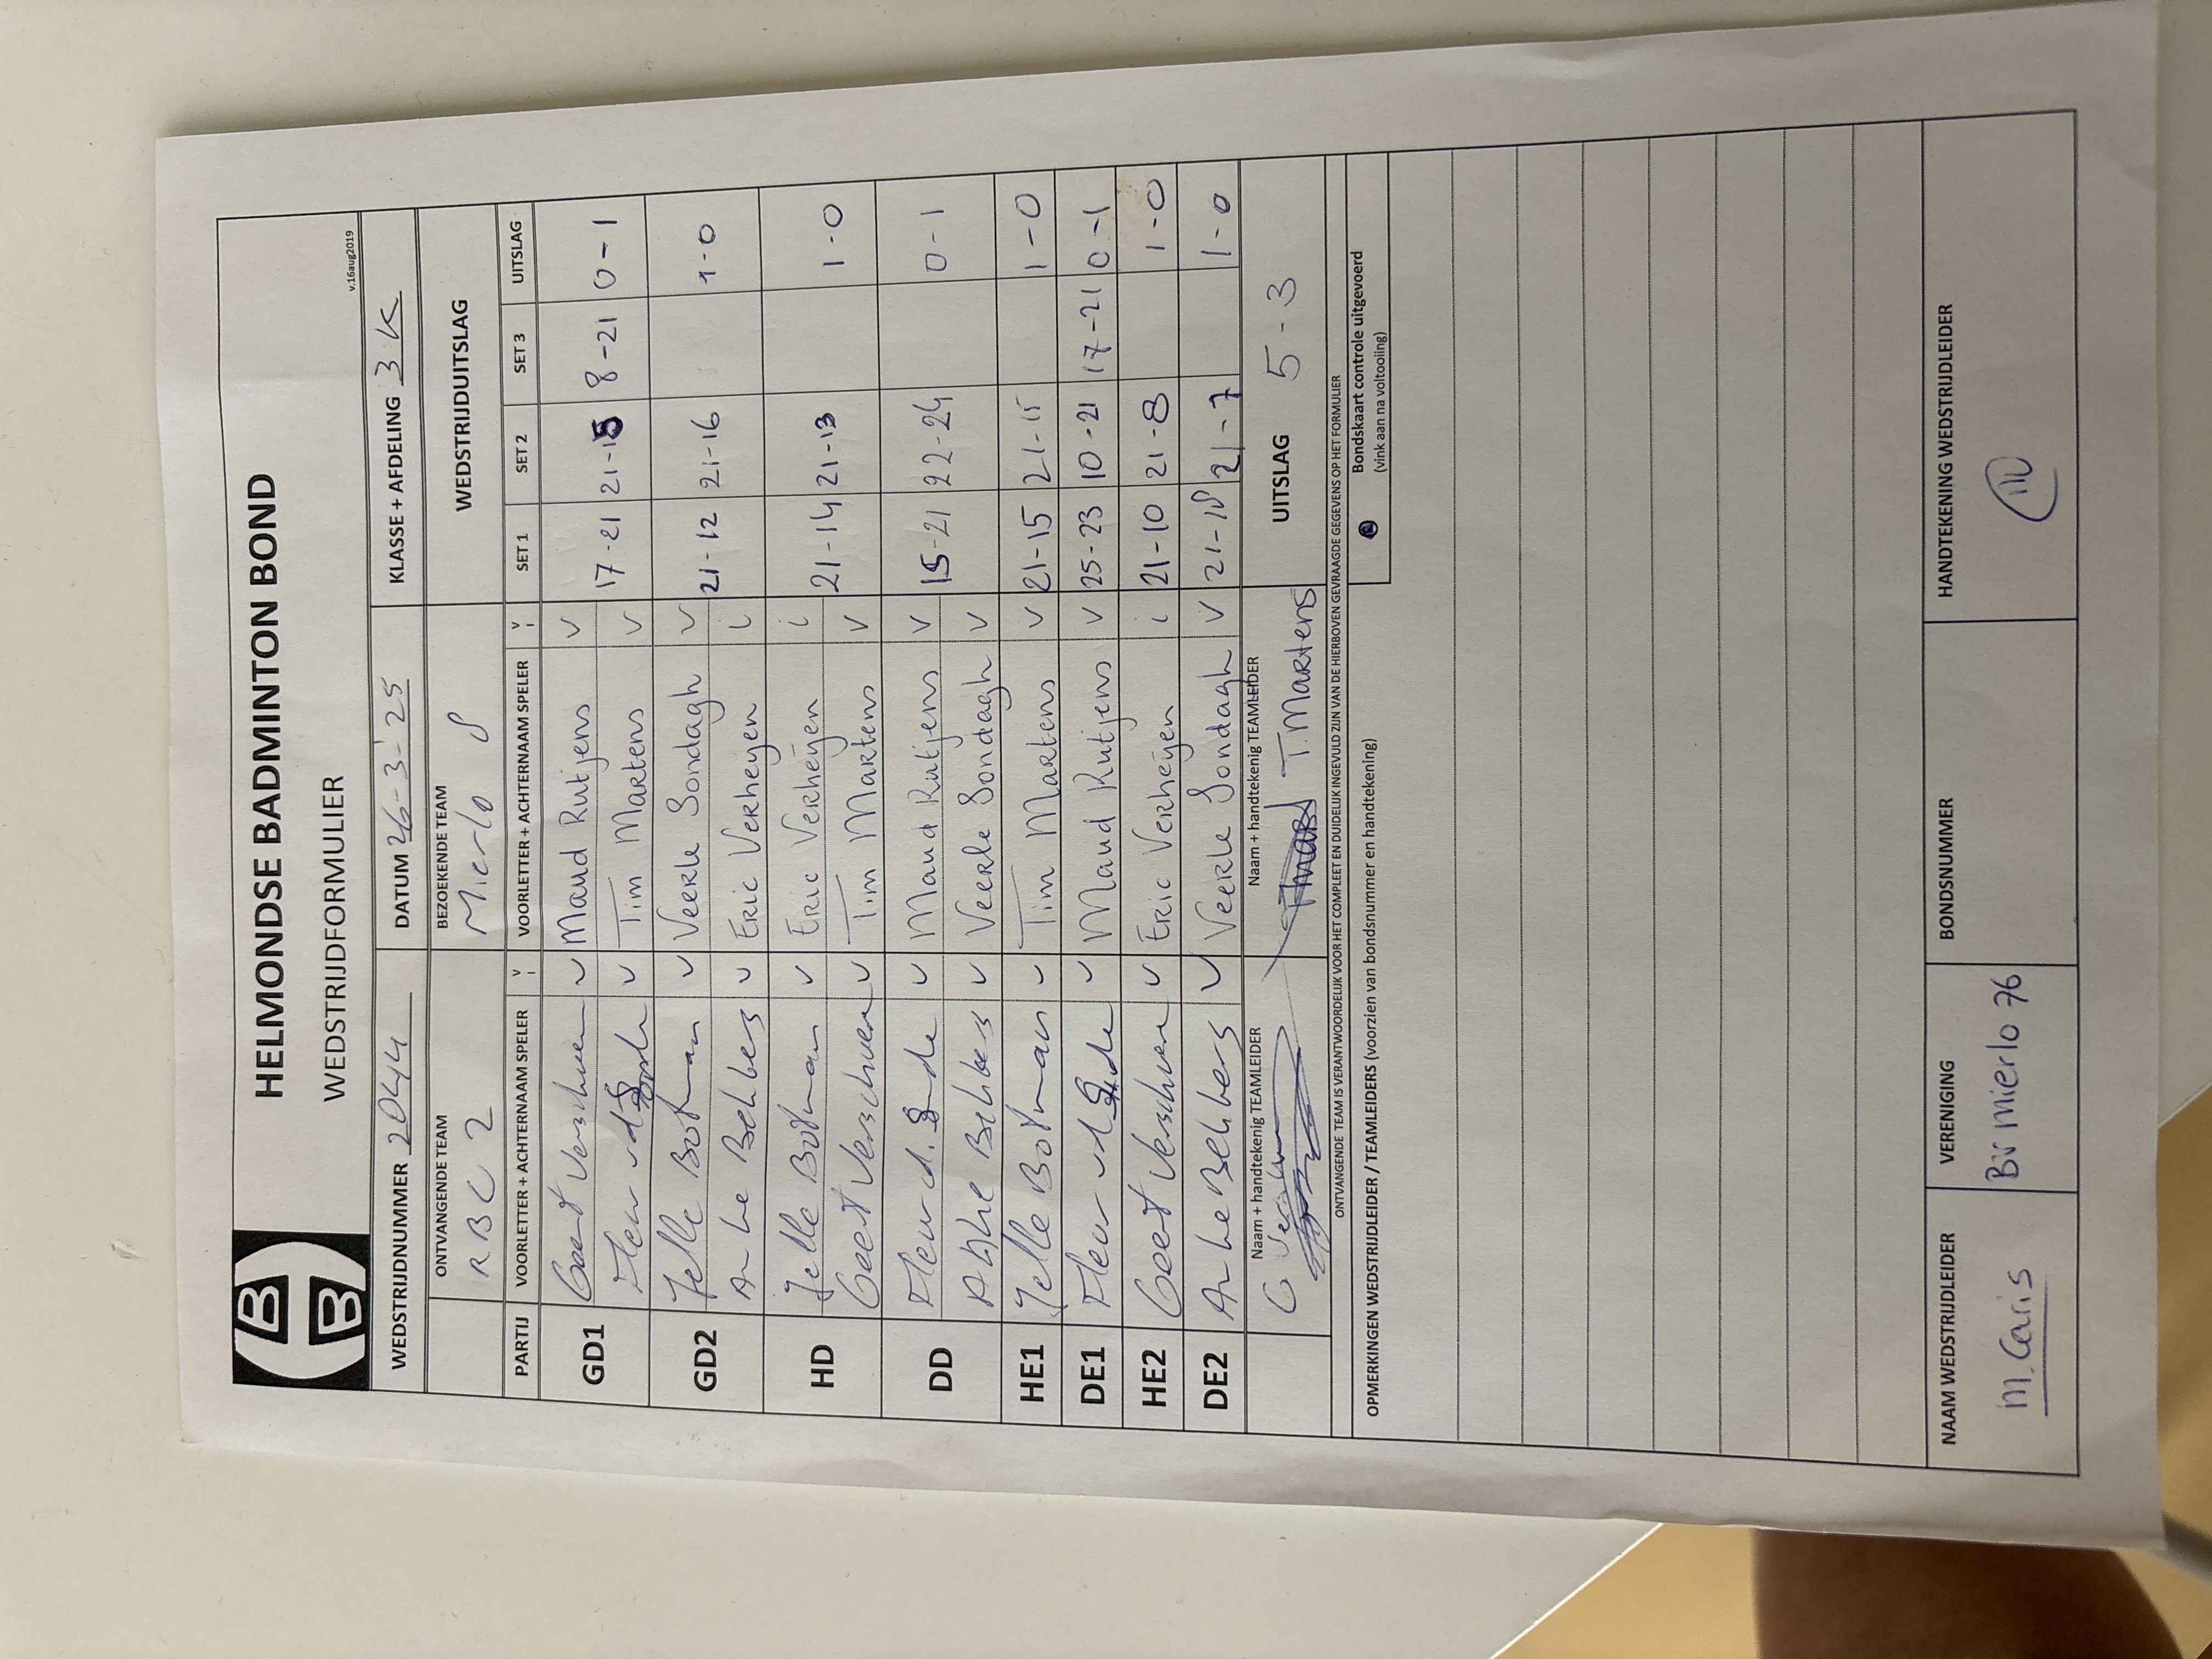 HELMONDSE BADMINTON BOND
WEDSTRIJDFORMULIER
v.16aug2019
WEDSTRIJDNUMMER 2044 DATUM 26-3-'25 KLASSE + AFDELING 3K
ONTVANGENDE TEAM BEZOEKENDE TEAM WEDSTRIJDUITSLAG
RBC 2 Mierlo 8
PARTIJ VOORLETTER + ACHTERNAAM SPELER V I VOORLETTER + ACHTERNAAM SPELER V I SET 1 SET 2 SET 3 UITSLAG
GD1 Geert Verschuren v Maud Rutjens v 17-21 21-15 8-21 0-1
Fleur v Tim Martens v
GD2 Jelle Botman v Veerle Sondagh v 21-12 21-16 1-0
Anke Behbers v Eric Verheyen i
HD Jelle Botman v Eric Verheyen i 21-14 21-13 1-0
Geert Verschuren v Tim Martens v
DD Fleur v Maud Rutjens v 15-21 22-24 0-1
Anke Behbers v Veerle Sondagh v
HE1 Jelle Botman v Tim Martens v 21-15 21-15 1-0
DE1 Fleur v Maud Rutjens v 25-23 10-21 17-21 0-1
HE2 Geert Verschuren v Eric Verheyen i 21-10 21-8 1-0
DE2 Anke Behbers v Veerle Sondagh v 21-18 21-7 1-0
Naam + handtekenig TEAMLEIDER Naam + handtekenig TEAMLEIDER UITSLAG 5-3
G T. Martens
ONTVANGENDE TEAM IS VERANTWOORDELIJK VOOR HET COMPLEET EN DUIDELIJK INGEVULD ZIJN VAN DE HIERBOVEN GEVRAAGDE GEGEVENS OP HET FORMULIER
OPMERKINGEN WEDSTRIJDLEIDER / TEAMLEIDERS (voorzien van bondsnummer en handtekening) Bondskaart controle uitgevoerd
(vink aan na voltooiing)
NAAM WEDSTRIJDLEIDER VERENIGING BONDSNUMMER HANDTEKENING WEDSTRIJDLEIDER
M. Caris BV Mierlo 76